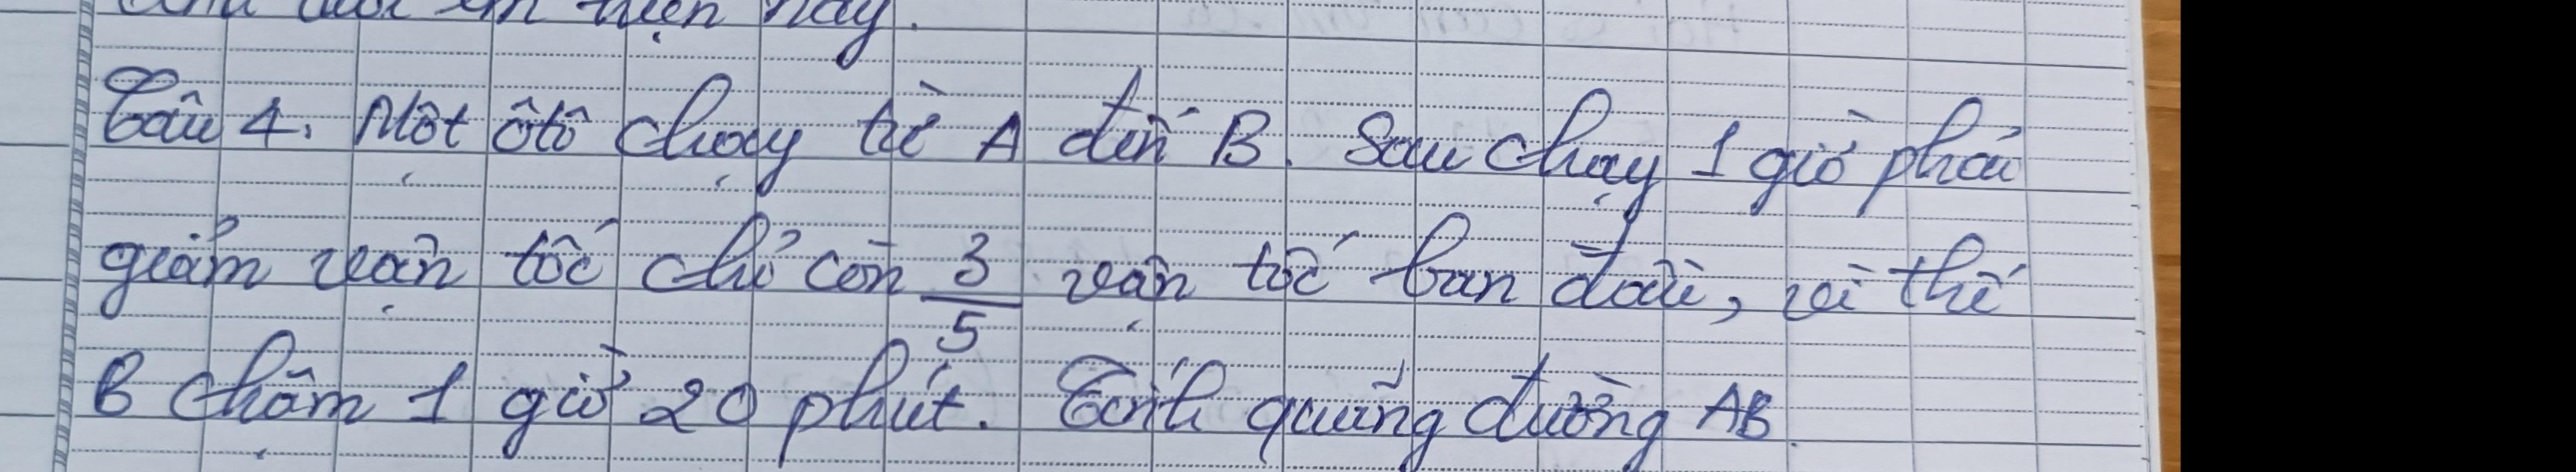 hiện nay.
Câu 4. Một ôtô chạy từ A đến B. Sau chạy 1 giờ phải
giảm vận tốc chỉ còn 3/5 vận tốc ban đầu, vì thế
B chậm 1 giờ 20 phút. Tính quãng đường AB.